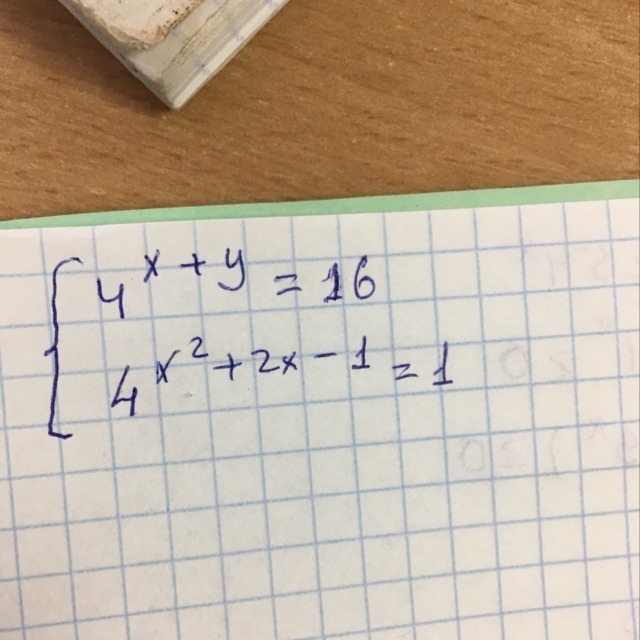 4^{x+y} = 16
4^{x^2+2x-1} = 1